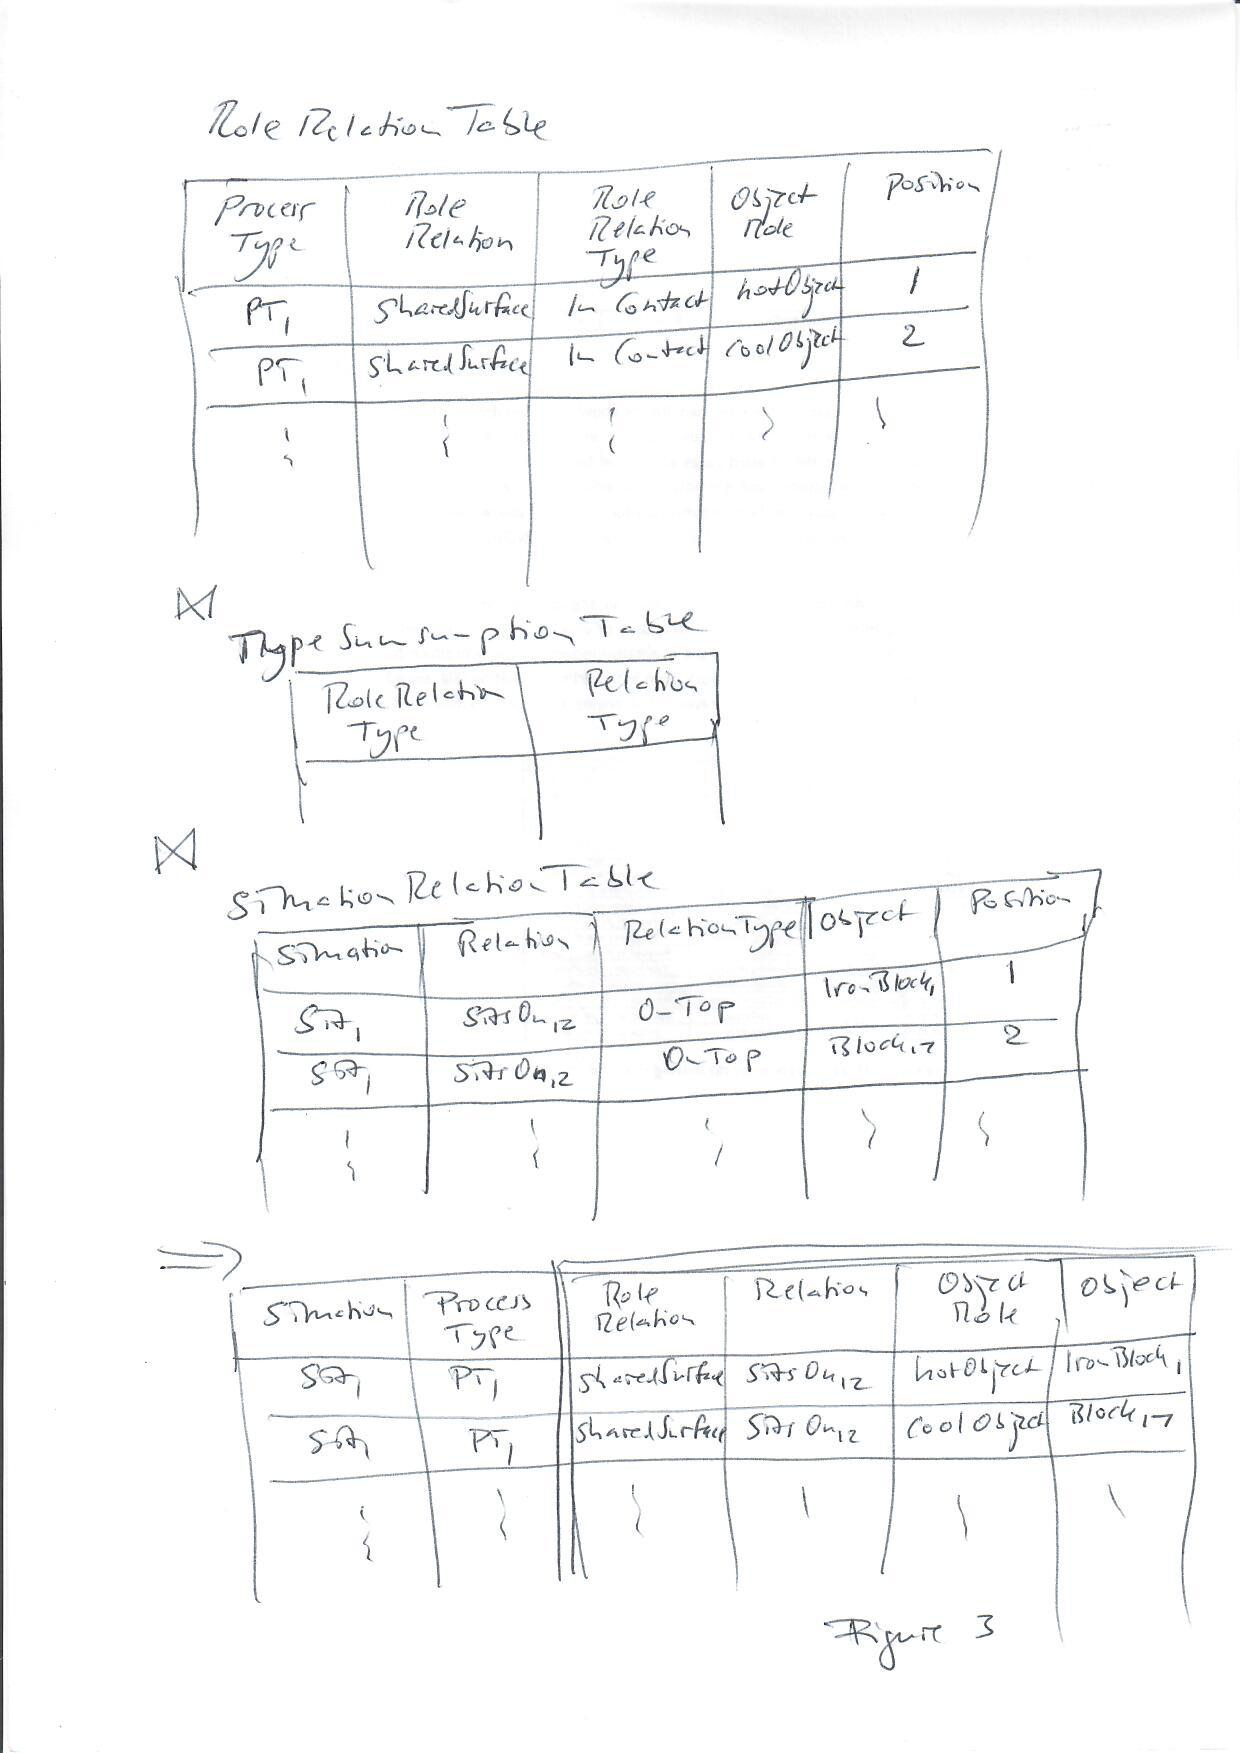 Role Relation Table
Process Type | Role Relation | Role Relation Type | Object Role | Position
PT1 | sharedSurface | In Contact | hotObject | 1
PT1 | sharedSurface | In Contact | coolObject | 2
⋈
Type Sumsumption Table
Role Relation Type | Relation Type
⋈
Situation Relation Table
Situation | Relation | Relation Type | Object | Position
Sit1 | SitsOn12 | OnTop | IronBlock1 | 1
Sit1 | SitsOn12 | OnTop | Block17 | 2
⇒
Situation | Process Type | Role Relation | Relation | Object Role | Object
Sit1 | PT1 | sharedSurface | SitsOn12 | hotObject | IronBlock1
Sit1 | PT1 | sharedSurface | SitsOn12 | coolObject | Block17
Figure 3